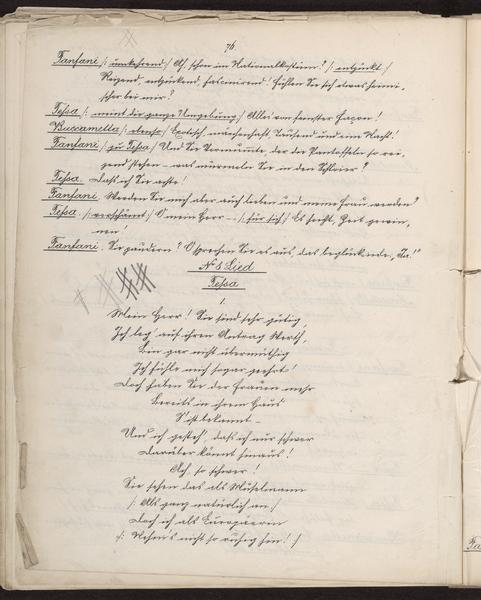 76.
Fanfani /: umkehrend :/ Ah, schon im Nationalkostüm? /: entzückt :/
Reizend, entzückend, fascinirend! Fühlen Sie sich etwas heimi-
scher bei mir?
Tessa /: meint die ganze Umgebung :/ Alles von feinster Façon!
Buscametta /: ebenso :/ Exotisch, märchenhaft, Tausend und eine Nacht!
Fanfani /: zu Tessa :/ Und Sie Vermummte, der die Pantoffeln so rei-
zend stehen – was murmeln Sie in den Schleier?
Tessa. Dass ich Sie achte!
Fanfani. Werden Sie mich aber auch lieben und meine Frau werden?
Tessa. /: verschämt :/ O mein Herr – /: für sich :/ Es heißt, Zeit gewin-
nen!
Fanfani. Sie zaudern? O sprechen Sie es aus, das beglückende „Ja!"
No 8 Lied
Tessa
1.
Mein Herr! Sie sind sehr gütig,
Ich leg' auf ihren Antrag Werth,
Bin gar nicht übermüthig
Ich fühle mich sogar geehrt!
Doch haben Sie der Frauen mehr
Bereits in ihrem Haus
S'ist bekannt –
Und ich gesteh', dass ich nur schwer
Darüber könnt' hinaus!
Ach, so schwer!
Sie sehen das als Muselmann
/: Als ganz natürlich an :/
Doch ich als Europäerin
/: Nehm's nicht so ruhig hin! :/